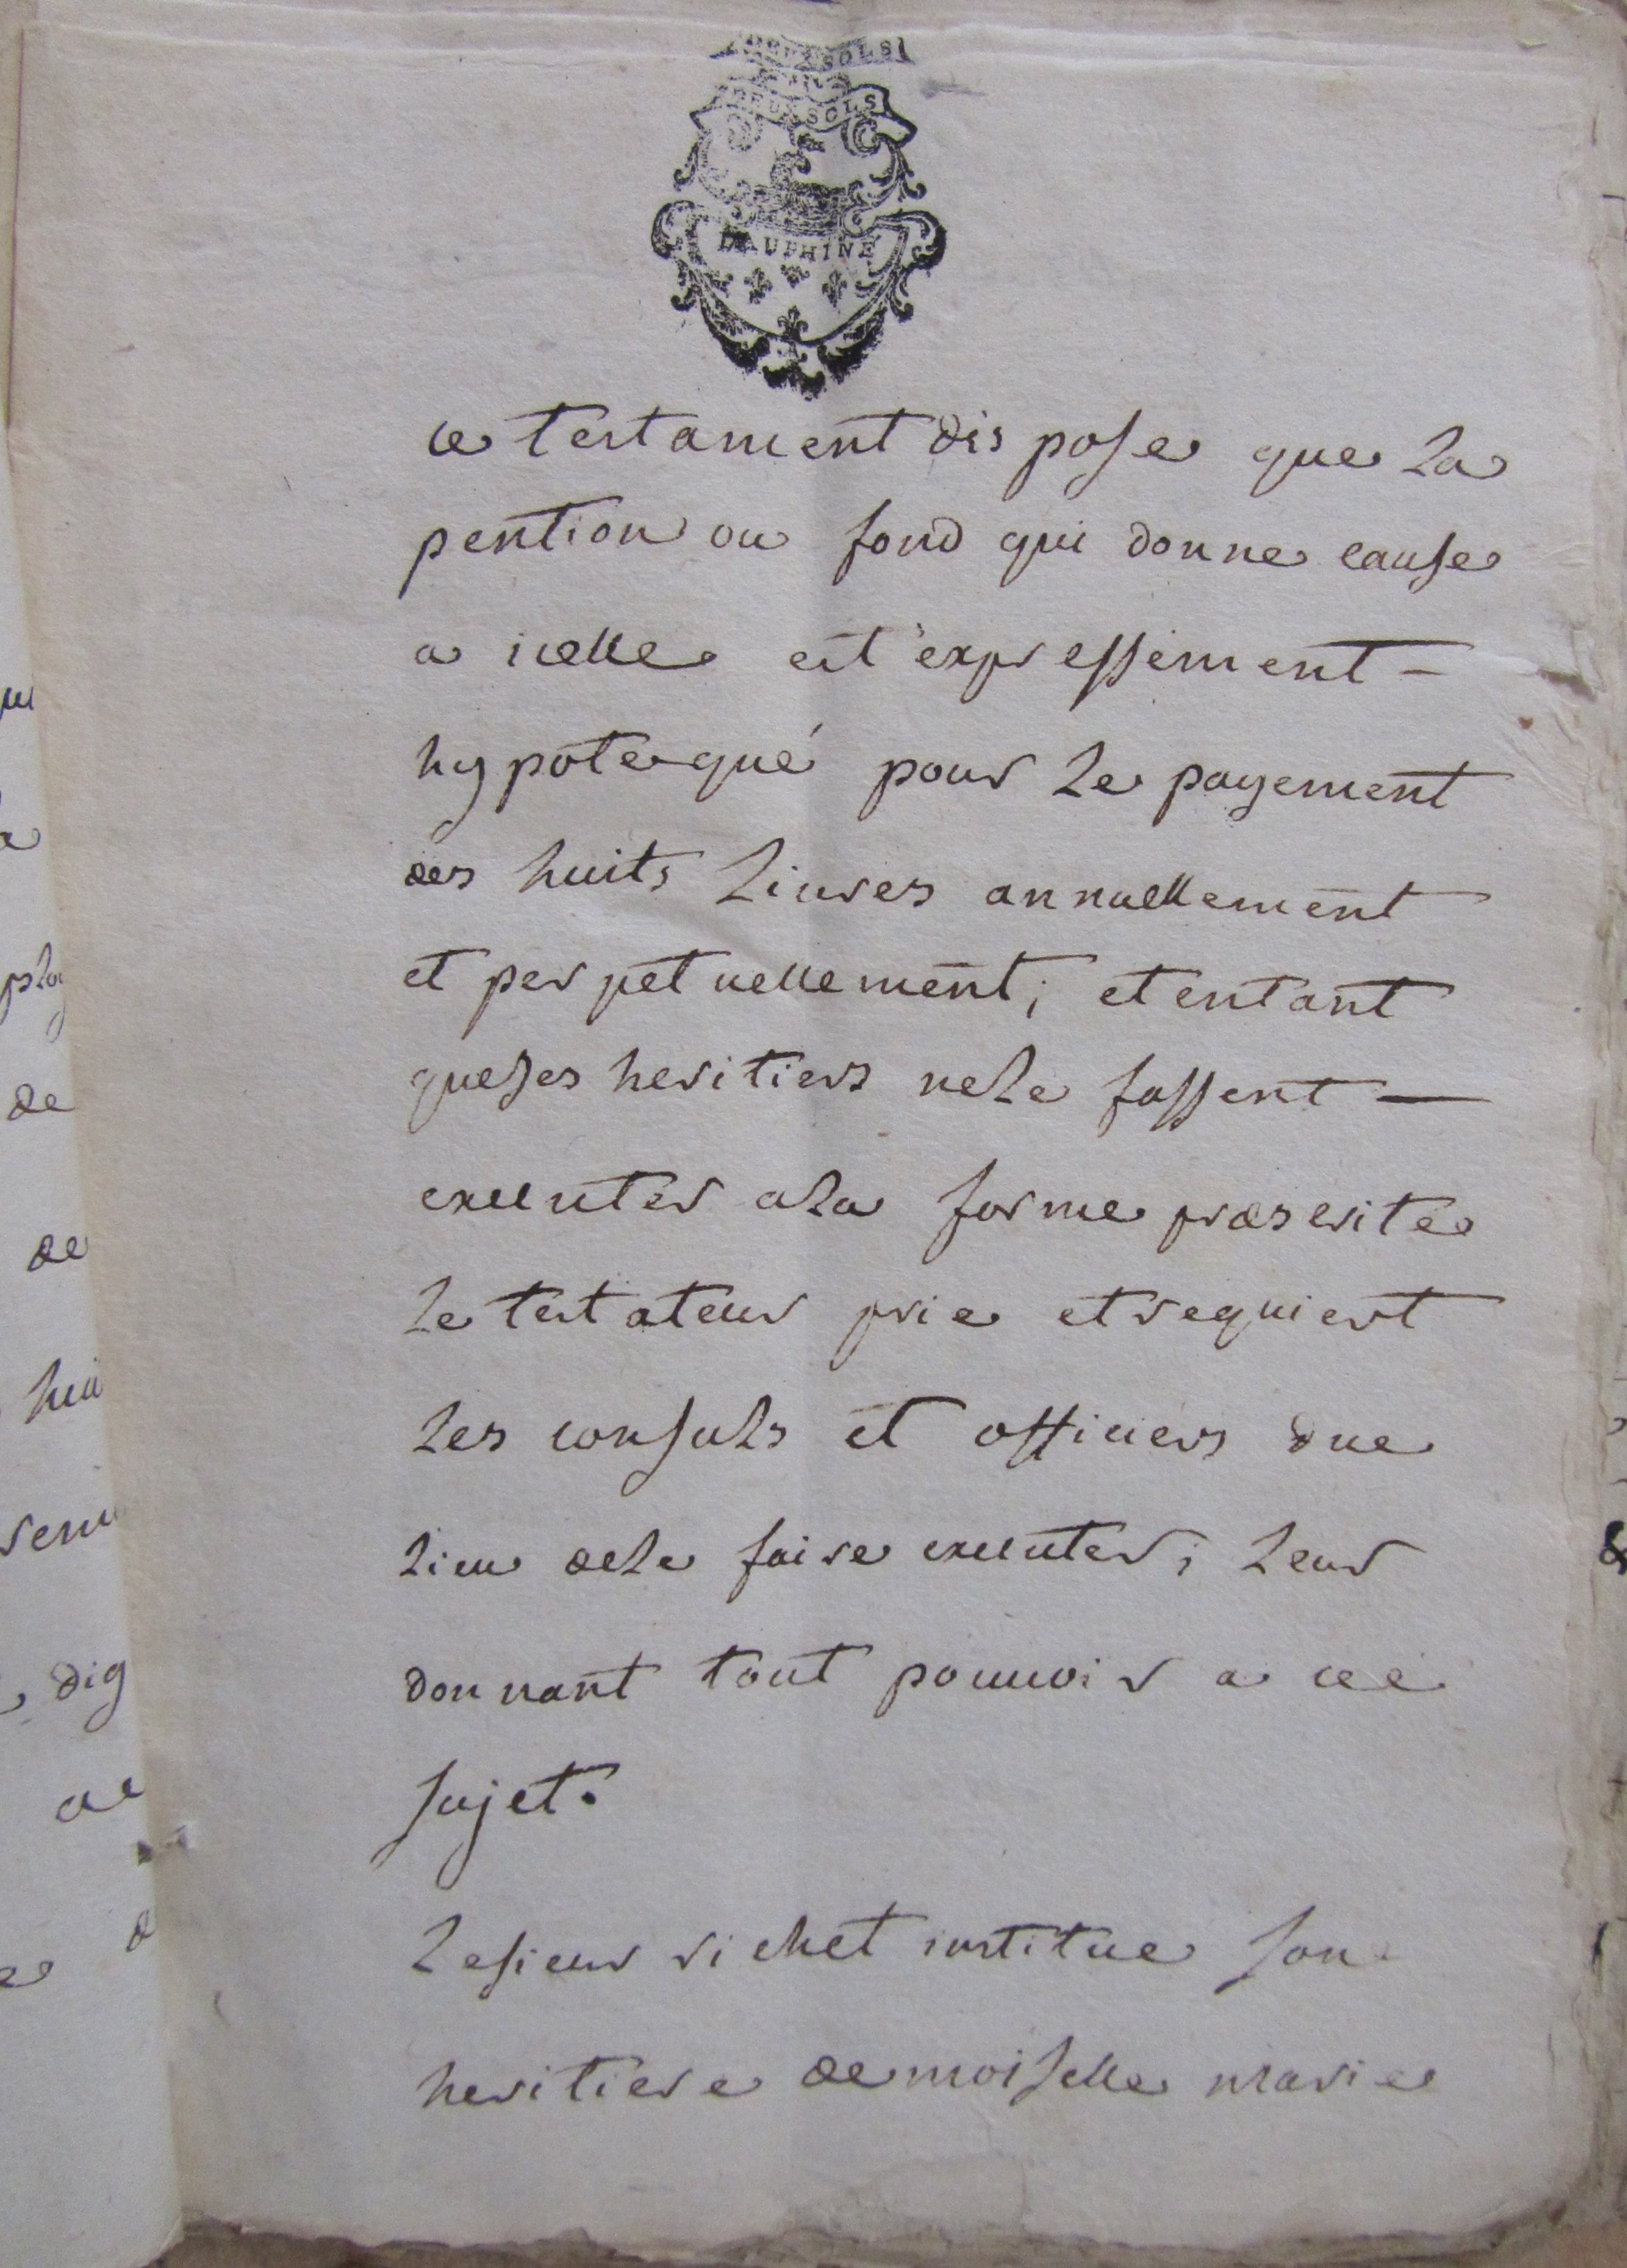 DEUX SOLS
DEUX SOLS
DAUPHINE
ce testament dispose que la
pention ou fond qui donne cause
a icelle est expressement -
hypotequé pour le payement
des huits livres annuellement
et perpetuellement; et entant
que ses heritiers ne le fassent —
executer a la forme prescrite
le testateur prie et requiert
les consuls et officiers due
lieu de le faire executer; leur
donnant tout pouvoir a ce
sujet.
le sieur richet institue son
heritiere demoiselle marie